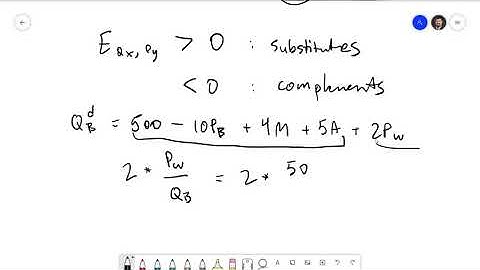 E Qx, Py > 0 : substitutes
< 0 : complements
Q_B^d = 500 - 10P_B + 4M + 5A + 2P_W
2 * P_W / Q_B = 2 * 50